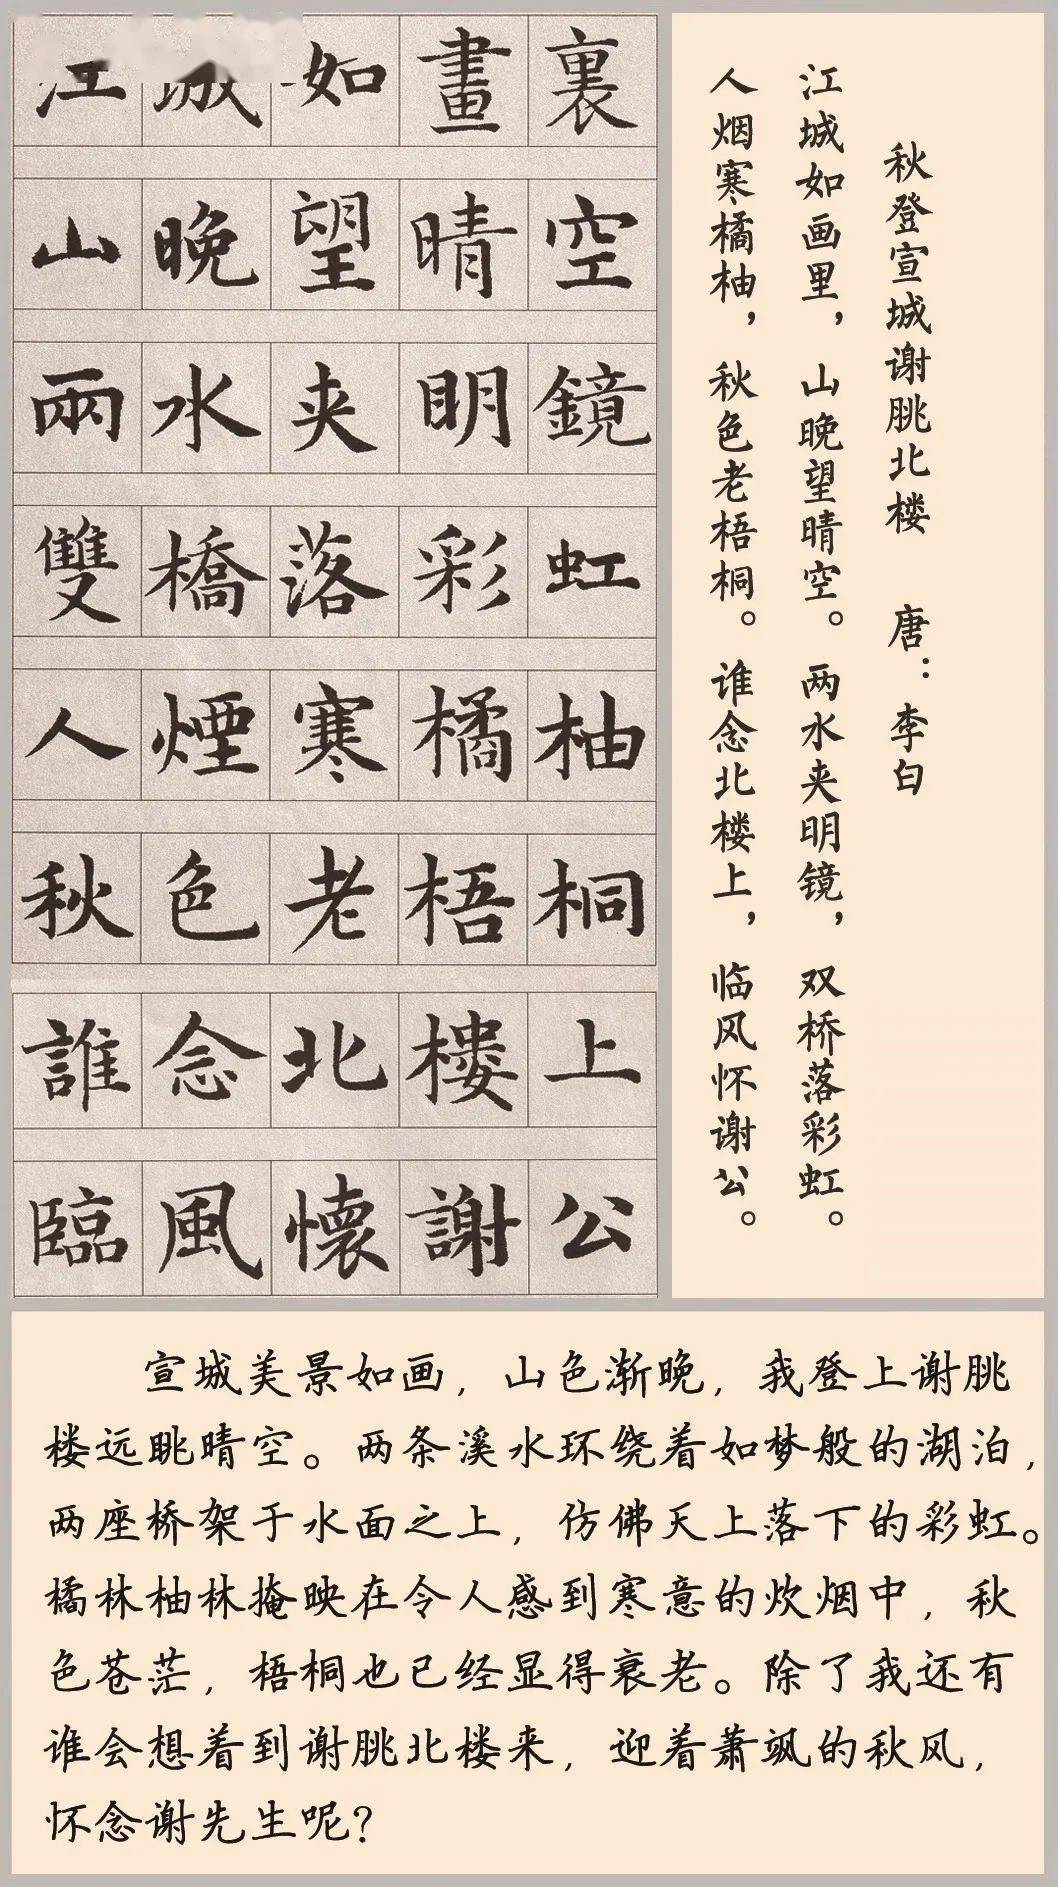 江城如畫裏
山晚望晴空
兩水夾明鏡
雙橋落彩虹
人煙寒橘柚
秋色老梧桐
誰念北樓上
臨風懷謝公
秋登宣城谢朓北楼 唐：李白
江城如画里，山晚望晴空。两水夹明镜，双桥落彩虹。
人烟寒橘柚，秋色老梧桐。谁念北楼上，临风怀谢公。
宣城美景如画，山色渐晚，我登上谢朓
楼远眺晴空。两条溪水环绕着如梦般的湖泊，
两座桥架于水面之上，仿佛天上落下的彩虹。
橘林柚林掩映在令人感到寒意的炊烟中，秋
色苍茫，梧桐也已经显得衰老。除了我还有
谁会想着到谢朓北楼来，迎着萧飒的秋风，
怀念谢先生呢？